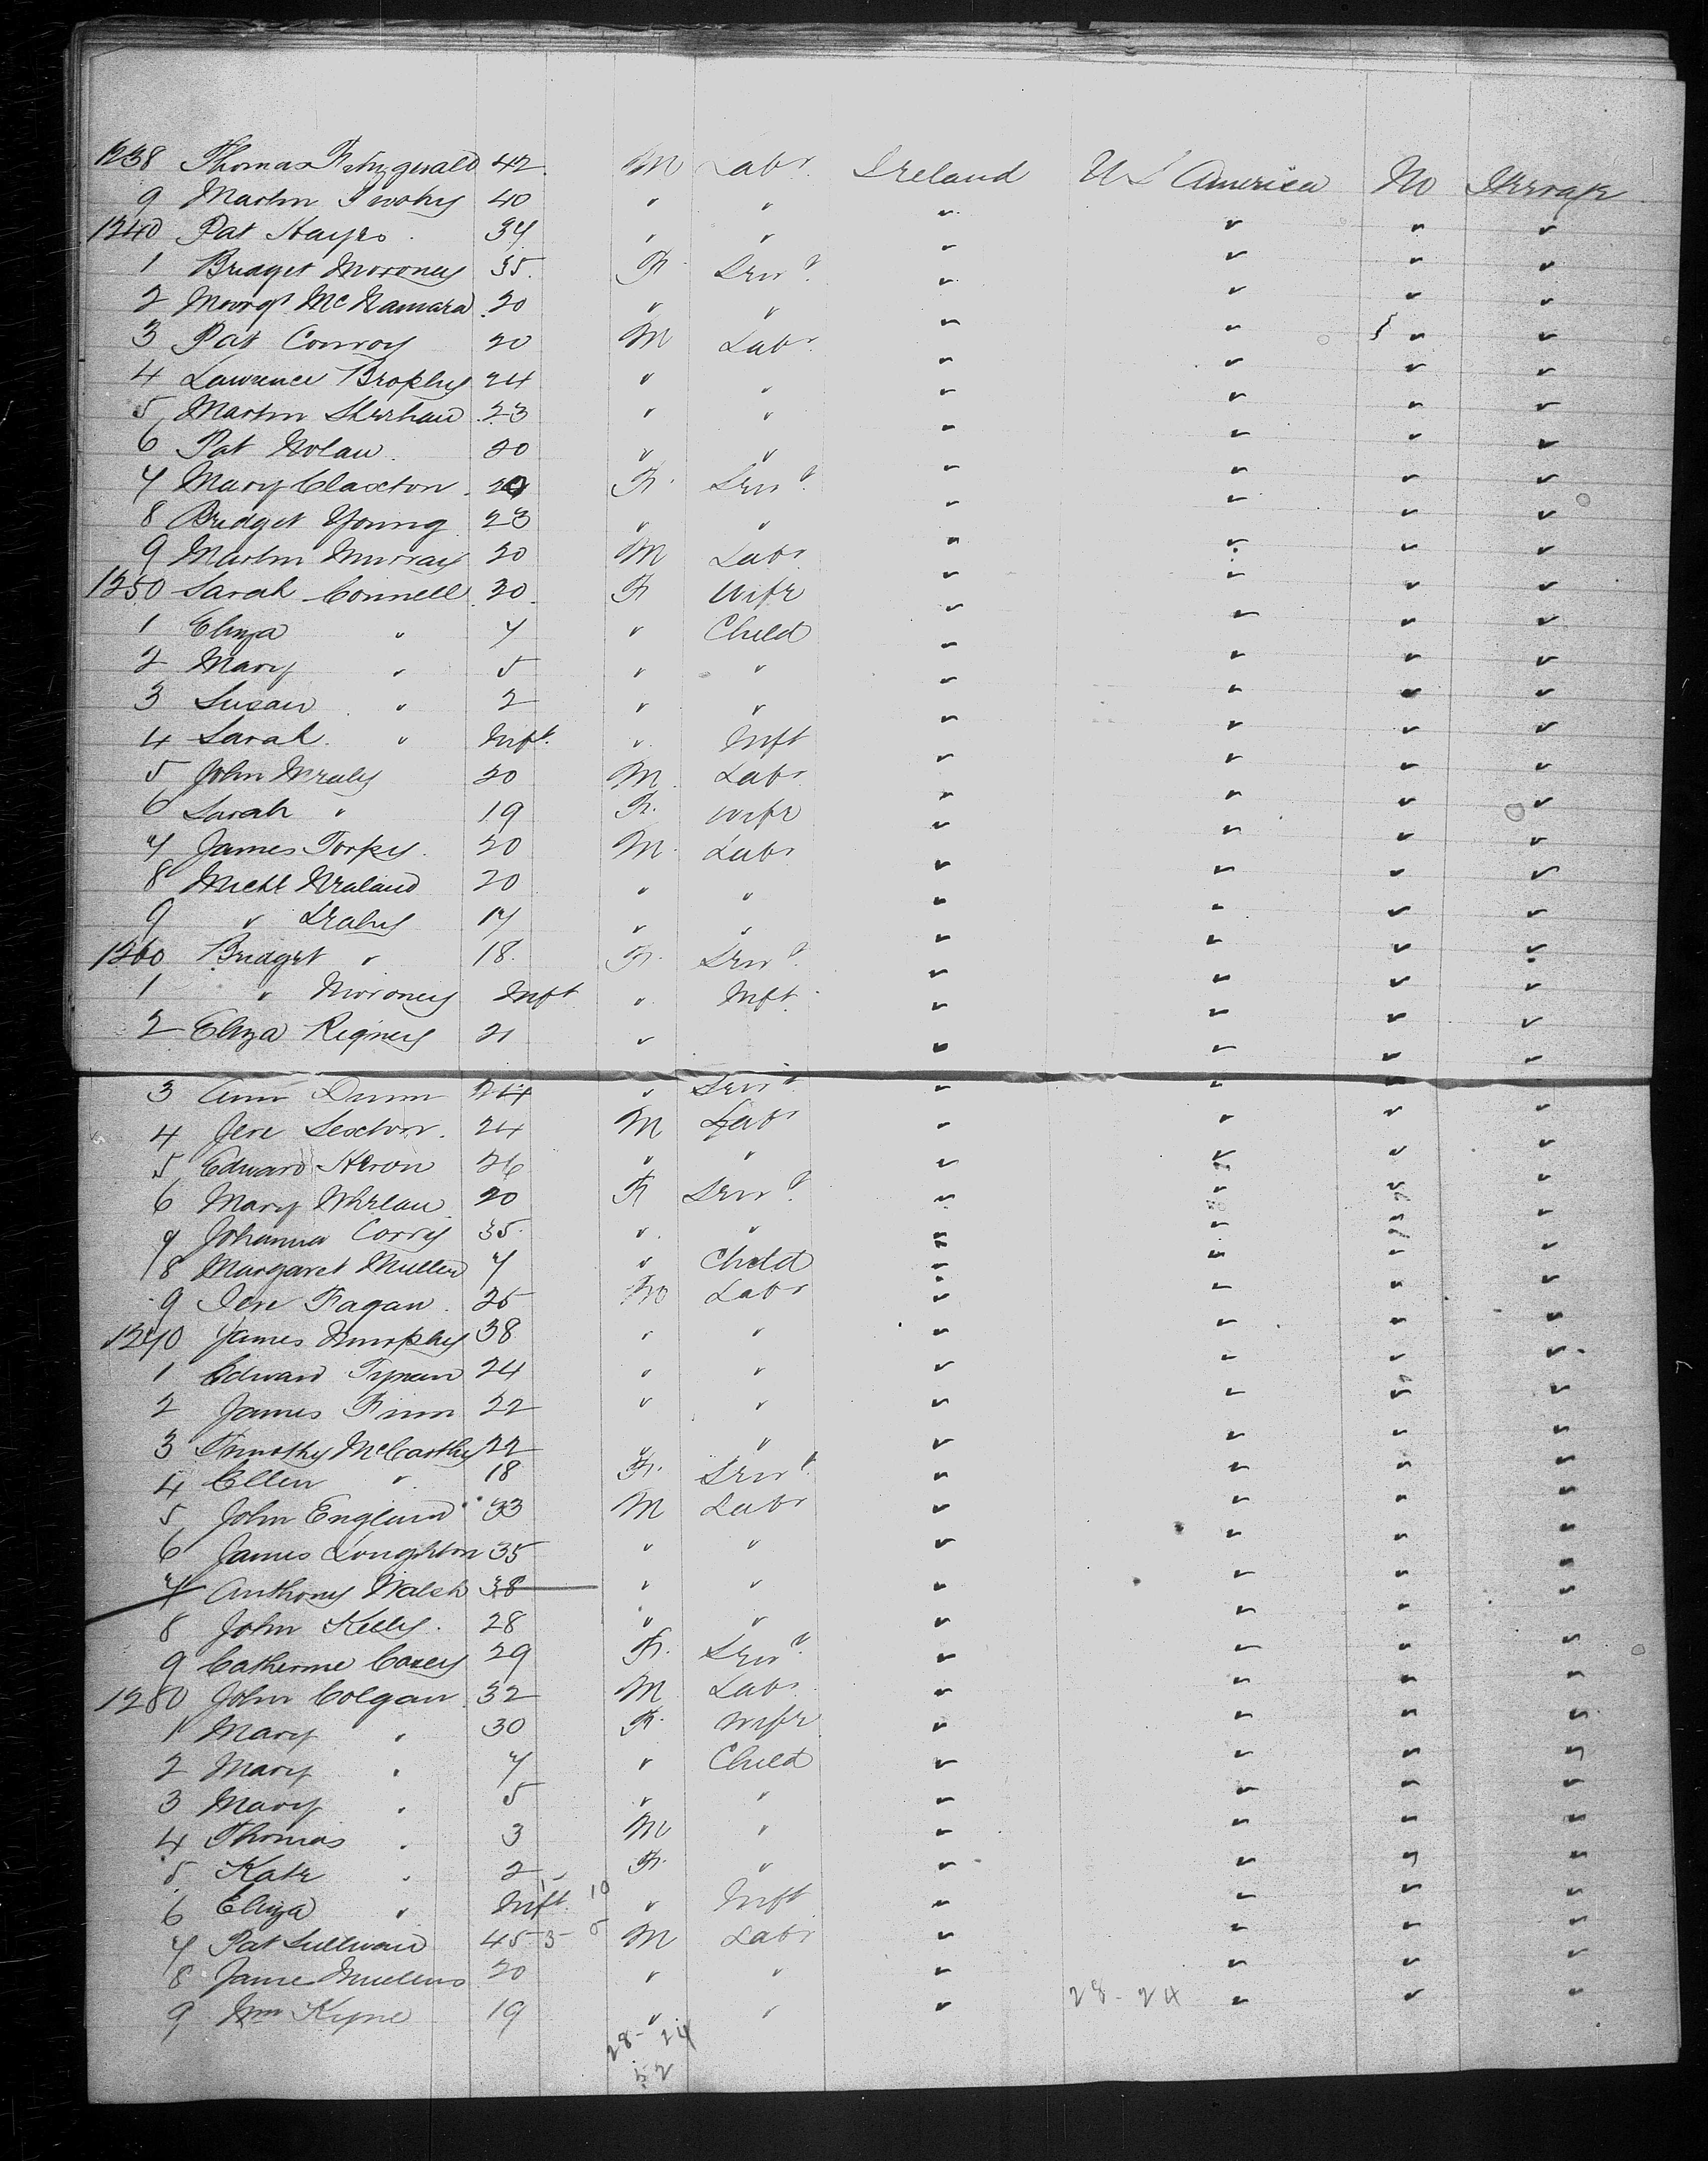 1238 Thomas Fitzgerald 42 M Labr. Ireland U S America No Steerage
9 Martin Twohy 40 " " " " " "
1240 Pat Hayes 34 " " " " " "
1 Bridget Moroney 35 F Servt. " " " "
2 Margt McNamara 20 " " " " " "
3 Pat Conroy 20 M Labr. " " " "
4 Lawrence Brophy 24 " " " " " "
5 Martin Sheehan 23 " " " " " "
6 Pat Nolan 20 " " " " " "
7 Mary Claxton 20 F Servt. " " " "
8 Bridget Young 23 " " " " " "
9 Martin Murray 20 M Labr " " " "
1250 Sarah Connell 30 F Wife " " " "
1 Eliza " 7 " Child " " " "
2 Mary " 5 " " " " " "
3 Susan " 2 " " " " " "
4 Sarah " Inft. " Inft " " " "
5 John Wraly 20 M Labr " " " "
6 Sarah " 19 F. Wife " " " "
7 James Torpy 20 M Labr " " " "
8 Michl 20 " " " " " "
9 " 17 " " " " " "
1260 Bridget " 18 F. Servt. " " " "
1 " Moroney Inft " Inft. " " " "
2 Eliza Rigney 21 " " " " "
3 Ann Dunn 24 " Servt. " " " "
4 Jere Sexton 24 M Labr " " " "
5 Edward Heron 26 " " " " " "
6 Mary Whelan 20 F Servt. " " " "
7 Johanna Corry 35 " " " " " "
8 Margaret Mullen 7 " Child " " " "
9 Jere Fagan 25 M Labr " " " "
1270 James Murphy 38 " " " " " "
1 Edward Tynan 24 " " " " " "
2 James Finn 22 " " " " " "
3 Timothy McCarthy 22 " " " " " "
4 Ellen " 18 F. Servt. " " " "
5 John England 33 M Labr " " " "
6 James Loughton 35 " " " " " "
7 Anthony Walsh 38 " " " " " "
8 John Kelly 28 " " " " " "
9 Catherine Casey 29 F. Servt. " " " "
1280 John Colgan 32 M Labr " " " "
1 Mary " 30 F. Wife " " " "
2 Mary " 7 " Child " " " "
3 Mary " 5 " " " " " "
4 Thomas " 3 M " " " " "
5 Kate " 2 F. " " " " "
6 Eliza " Inft. 10 " Inft " " " "
7 Pat Sullivan 45 5 5 M Labr " " " "
8 James Mullins 20 " " " " " "
9 Wm Kyne 19 " " " 28-24 " " "
28-24
52